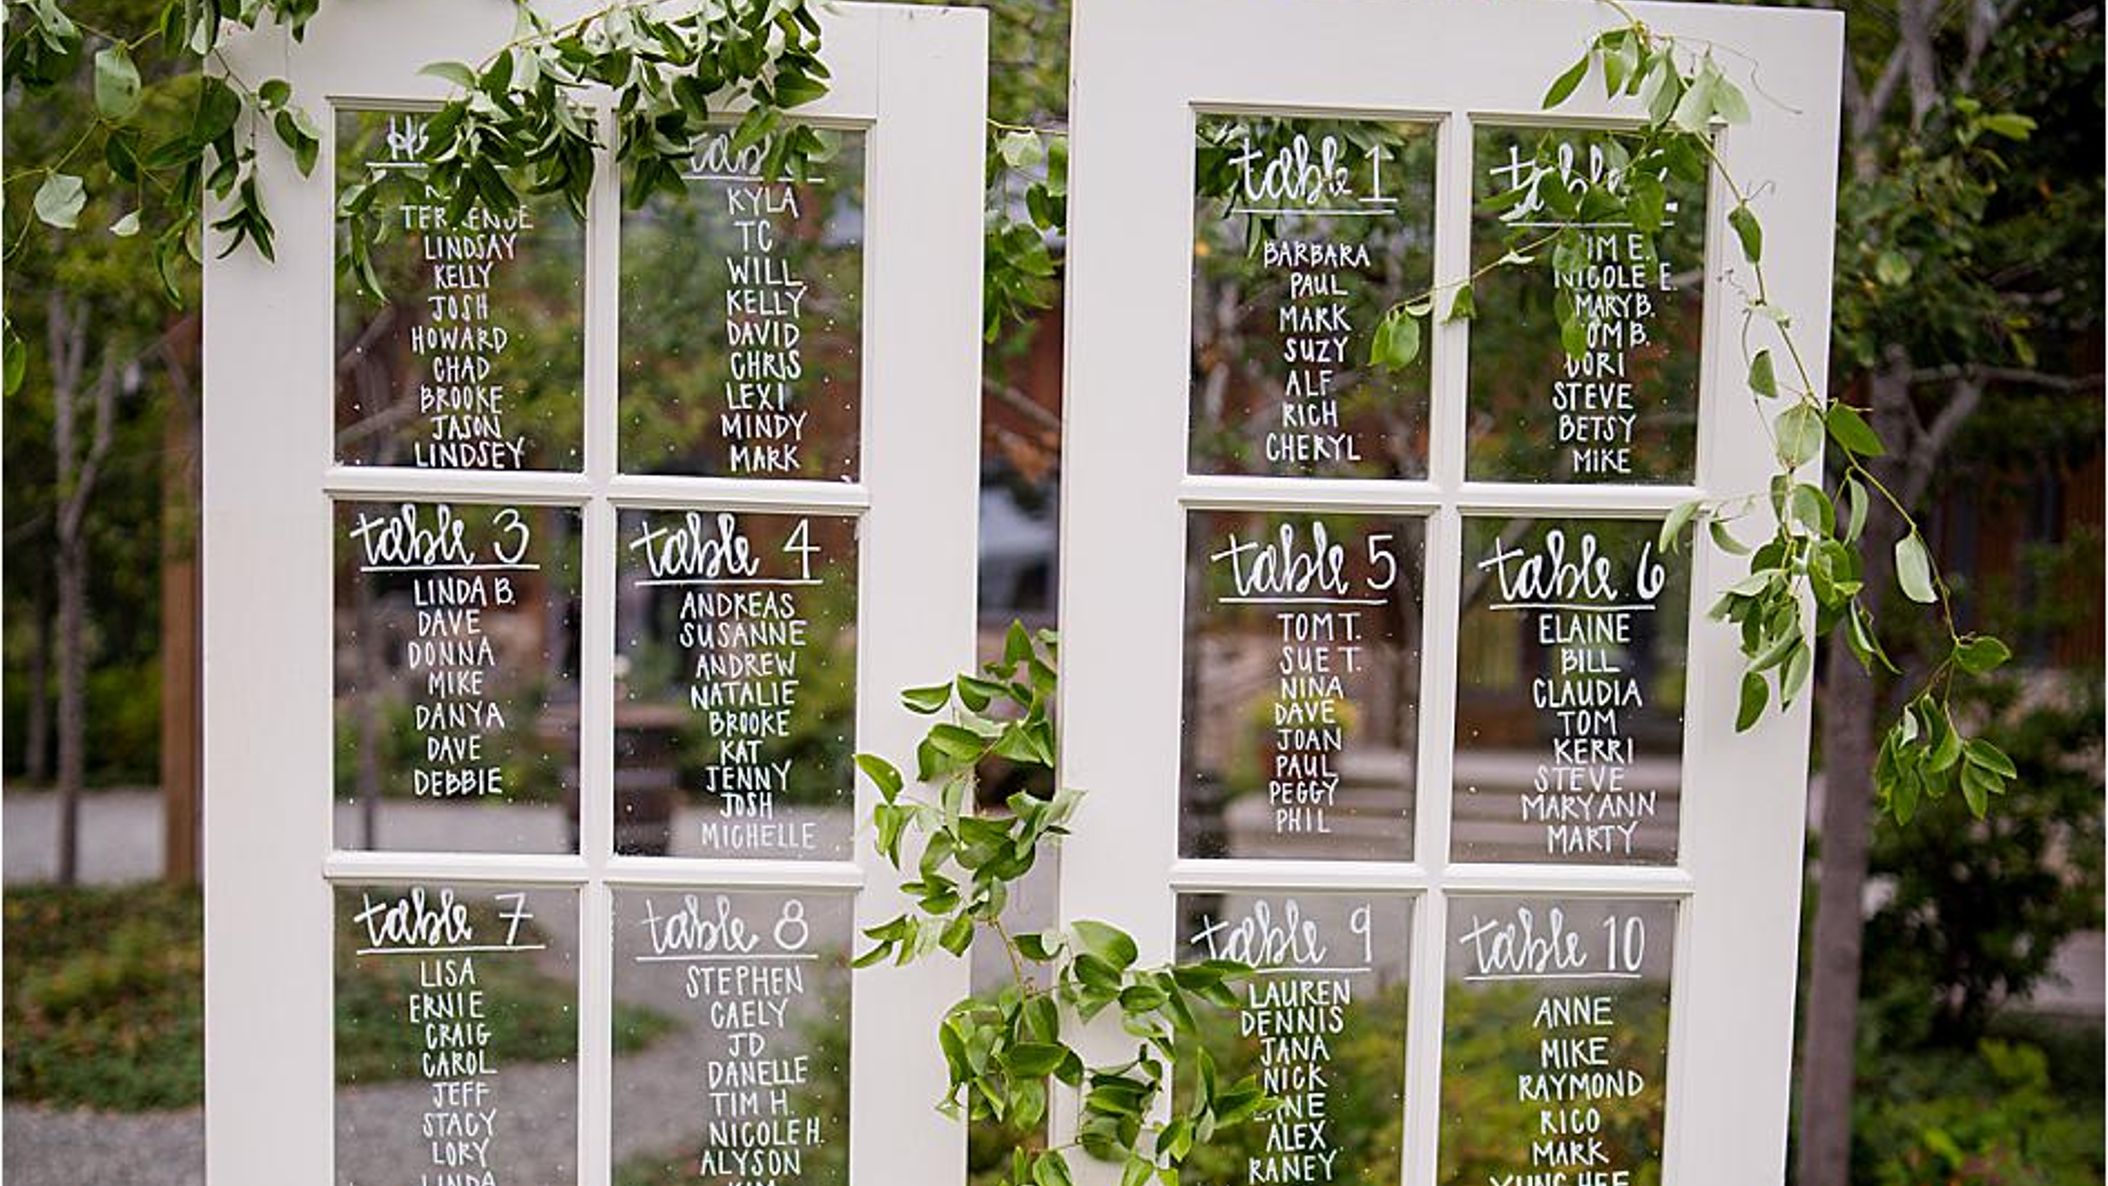 TERRENCE
LINDSAY
KELLY
JOSH
HOWARD
CHAD
BROOKE
JASON
LINDSEY
KYLA
TC
WILL
KELLY
DAVID
CHRIS
LEXI
MINDY
MARK
table 1
BARBARA
PAUL
MARK
SUZY
ALF
RICH
CHERYL
NICOLE E.
MARY B.
STEVE
BETSY
MIKE
table 3
LINDA B.
DAVE
DONNA
MIKE
DANYA
DAVE
DEBBIE
table 4
ANDREAS
SUSANNE
ANDREW
NATALIE
BROOKE
KAT
JENNY
JOSH
MICHELLE
table 5
TOM T.
SUE T.
NINA
DAVE
JOAN
PAUL
PEGGY
PHIL
table 6
ELAINE
BILL
CLAUDIA
TOM
KERRI
STEVE
MARYANN
MARTY
table 7
LISA
ERNIE
CRAIG
CAROL
JEFF
STACY
LORY
LINDA
table 8
STEPHEN
CAELY
JD
DANELLE
TIM H.
NICOLE H.
ALYSON
KIM
table 9
LAUREN
DENNIS
JANA
NICK
ALEX
RANEY
table 10
ANNE
MIKE
RAYMOND
RICO
MARK